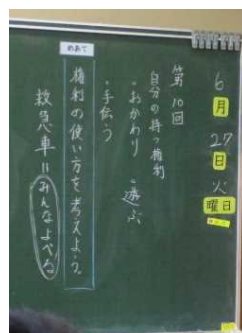 6月27日火曜日
第10回
自分の持つ権利
・おかわり ・遊ぶ
・手伝う
めあて
権利の使い方を考えよう。
救急車=みんなよべる